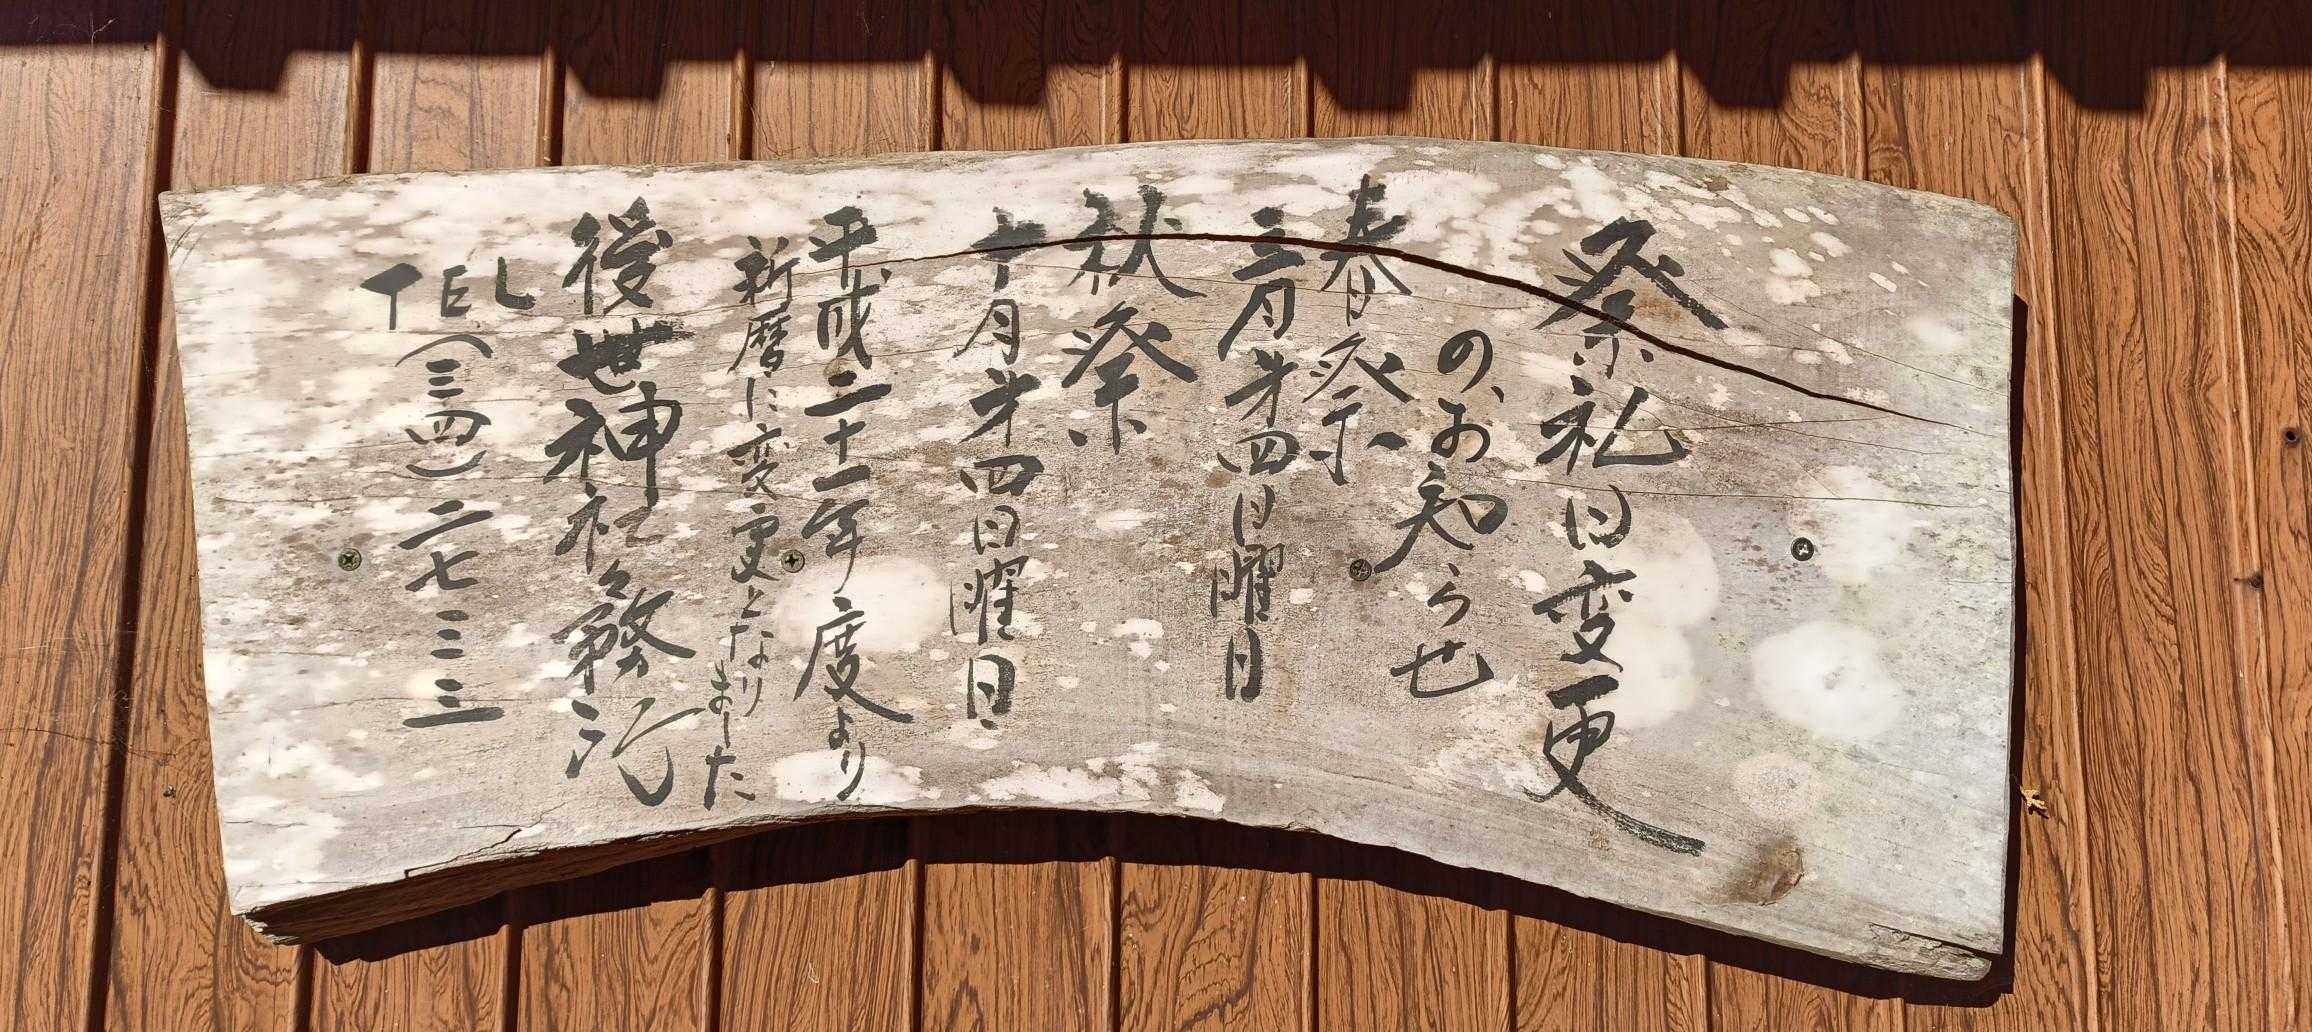 祭礼日変更
のお知らせ
春祭
三月第四日曜日
秋祭
十月第四日曜日
平成二十一年度より
新暦に変更となりました
後世神社務所
TEL(三四)二七三三